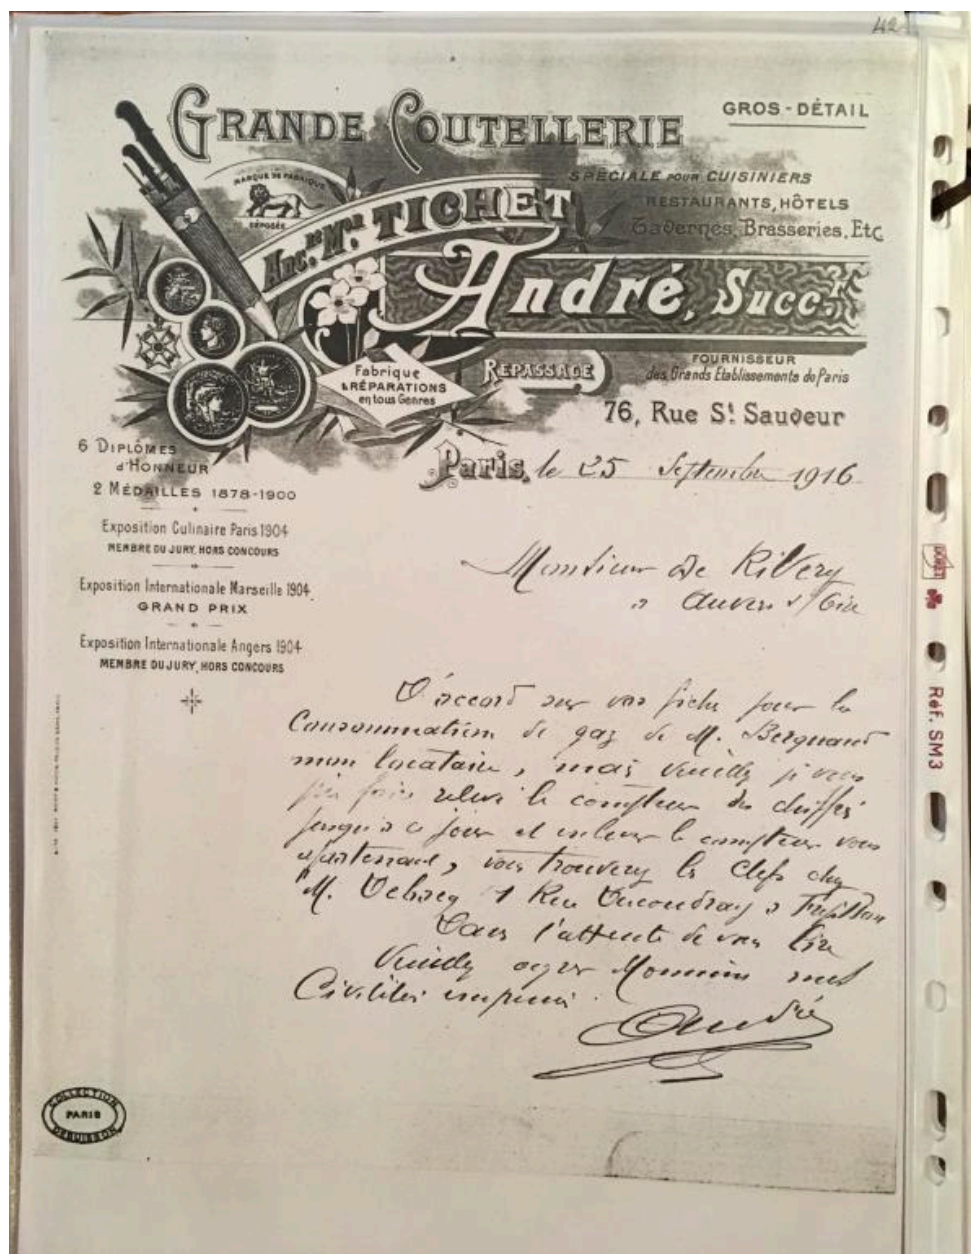 42
GRANDE COUTELLERIE
GROS - DÉTAIL
MARQUE DE FABRIQUE
DÉPOSÉE
SPÉCIALE POUR CUISINIERS
RESTAURANTS, HÔTELS
Tavernes, Brasseries, Etc
Anc. Ne Mon TICHET
André, Succr.
Fabrique
& RÉPARATIONS
en tous Genres
REPASSAGE
FOURNISSEUR
des Grands Etablissements de Paris
76, Rue St. Sauveur
6 DIPLÔMES
d'HONNEUR
2 MÉDAILLES 1878-1900
Paris, le 25 Septembre 1916
Exposition Culinaire Paris 1904
MEMBRE DU JURY, HORS CONCOURS
Exposition Internationale Marseille 1904
GRAND PRIX
Exposition Internationale Angers 1904
MEMBRE DU JURY, HORS CONCOURS
Monsieur De Rivery
à Auvers s/ Oise
D'accord sur vos fiche pour la
Consommation de gaz de M.
mon locataire, mais Veuillez je vous
prie faire relevé le compteur des chiffres
jusqu'à ce jour et enlever le compteur vous
apartenant, vous trouverez les clefs chez
M. 1 Rue à
Dans l'attente de vous lire
Veuillez agréer Monsieur mes
Civilités empressées.
André
COLLECTION
PARIS
Réf. SM3